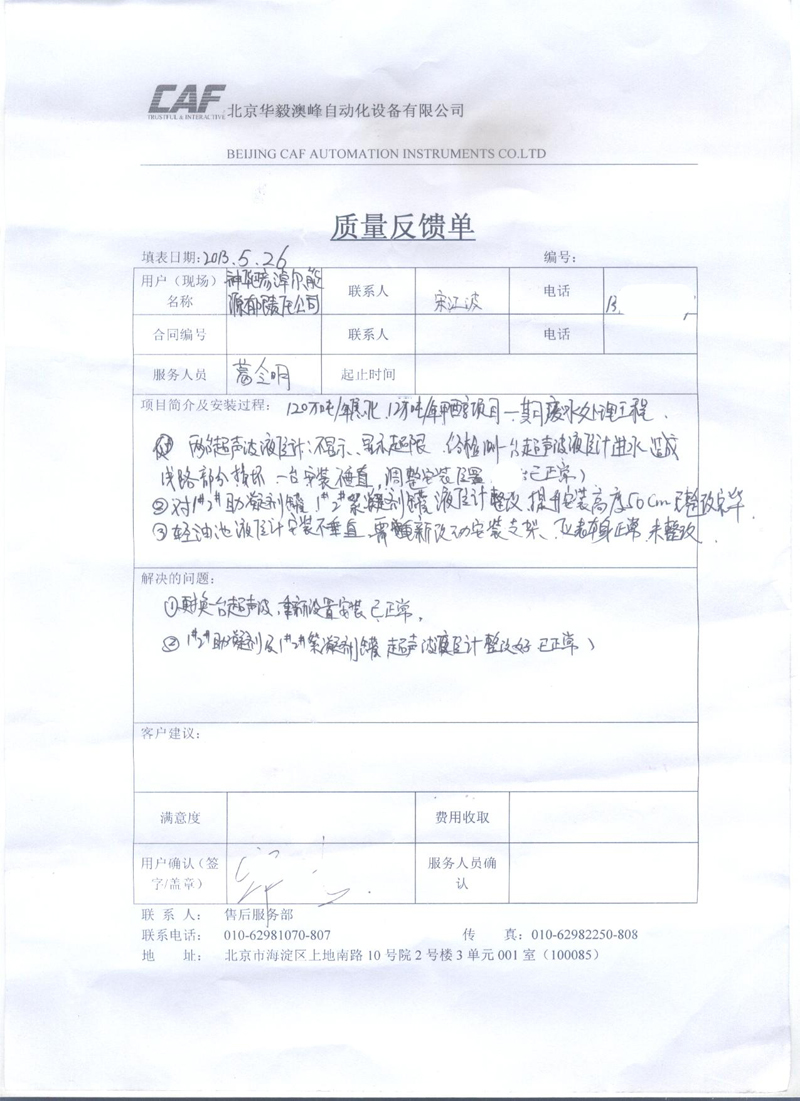 CAF
TRUSTFUL & INTERACTIVE
北京华毅澳峰自动化设备有限公司
BEIJING CAF AUTOMATION INSTRUMENTS CO.LTD
质量反馈单
填表日期: 2013.5.26 编号:
用户(现场)名称 神华 源有限公司 联系人 宋江波 电话 13.
合同编号 联系人 电话
服务人员 葛全明 起止时间
项目简介及安装过程: 120万吨/年焦化 12万吨/年甲醇项目一期废水处理工程.
① 两台超声波液位计:不显示、显示超限 经检测一台超声波液位计进水造成
线路部分损坏 一台安装不垂直,调整安装位置 (已正常)
② 对1#2#助凝剂罐 1#2#絮凝剂罐 液位计整改,提升安装高度50cm 已整改完毕
③ 轻油池液位计安装不垂直 需重新改动安装支架、仪表本身正常,未整改.
解决的问题:
① 更换一台超声波,重新设置安装 已正常,
② 1#2#助凝剂及1#2#絮凝剂罐 超声波液位计整改好 已正常)
客户建议:
满意度 费用收取
用户确认(签字/盖章) 服务人员确认
联 系 人: 售后服务部
联系电话: 010-62981070-807 传 真: 010-62982250-808
地 址: 北京市海淀区上地南路 10 号院 2 号楼 3 单元 001 室(100085)